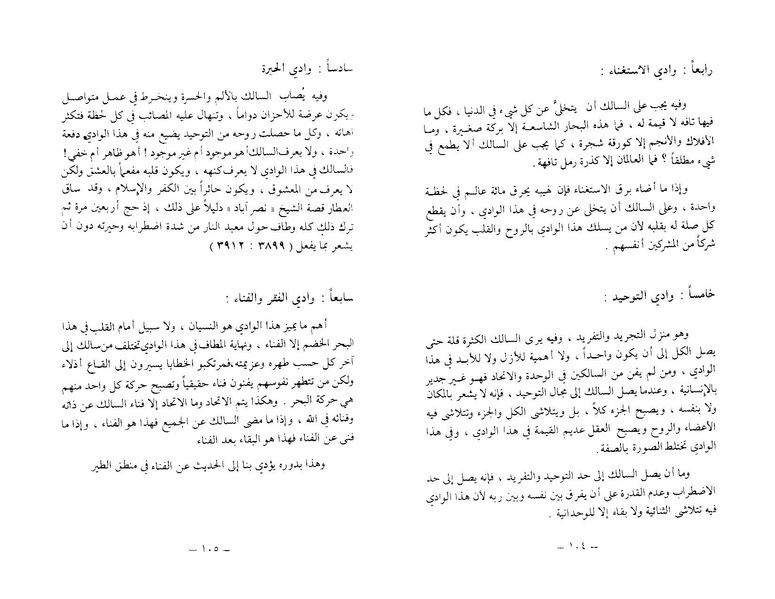 رابعاً : وادي الاستغناء :
وفيه يجب على السالك أن يتخلىَّ عن كل شيء في الدنيا ، فكل ما
فيها تافه لا قيمة له ، فما هذه البحار الشاسعة إلا بركة صغيرة ، وما
الأفلاك والأنجم إلا كورقة شجرة ، كما يجب على السالك ألا يطمع في
شيء مطلقاً ؟ فما العالمان إلا كذرة رمل تافهة .
وإذا ما أضاء برق الاستغناء فإن لهيبه يحرق مائة عالم في لحظة
واحدة ، وعلى السالك أن يتخلى عن روحه في هذا الوادي ، وأن يقطع
كل صلة له بقلبه لأن من يسلك هذا الوادي بالروح والقلب يكون أكثر
شركاً من المشركين أنفسهم .
خامساً : وادي التوحيد :
وهو منزل التجريد والتفريد ، وفيه يرى السالك الكثرة قلة حتى
يصل الكل إلى أن يكون واحداً ، ولا أهمية للأزل ولا للأبد في هذا
الوادي ، ومن لم يفن من السالكين في الوحدة والاتحاد فهو غير جدير
بالإنسانية ، وعندما يصل السالك إلى مجال التوحيد ، فإنه لا يشعر بالمكان
ولا بنفسه ، ويصبح الجزء كلاً ، بل ويتلاشى الكل والجزء وتتلاشى فيه
الأعضاء والروح ويصبح العقل عديم القيمة في هذا الوادى ، وفي هذا
الوادى تختلط الصورة بالصفة.
وما أن يصل السالك إلى حد التوحيد والتفريد ، فإنه يصل إلى حد
الاضطراب وعدم القدرة على أن يفرق بين نفسه وبين ربه لأن هذا الوادي
فيه تتلاشى الثنائية ولا بقاء إلا للوحدانية .
— ١٠٤ —
سادساً : وادي الحيرة
وفيه يُصاب السالك بالألم والحسرة وينخرط في عمل متواصل
ويكون عرضة للأحزان دواماً ، وتنهال عليه المصائب في كل لحظة فتكثر
آهاته ، وكل ما حصلت روحه من التوحيد يضيع منه في هذا الوادي دفعة
واحدة ، ولا يعرف السالك أهو موجود أم غير موجود ! أهو ظاهر أم خفي!
فالسالك في هذا الوادي لا يعرف كنهه ، ويكون قلبه مفعماً بالعشق ولكن
لا يعرف من المعشوق ، ويكون حائراً بين الكفر والإسلام ، وقد ساق
العطار قصة الشيخ « نصر آباد » دليلاً على ذلك ، إذ حج أربعين مرة ثم
ترك ذلك كله وطاف حول معبد النار من شدة اضطرابه وحيرته دون أن
يشعر بما يفعل ( ٣٨٩٩ : ٣٩١٢ )
سابعاً : وادي الفقر والفناء :
أهم ما يميز هذا الوادي هو النسيان ، ولا سبيل أمام القلب في هذا
البحر الخضم إلا الفناء ، ونهاية المطاف في هذا الوادي تختلف من سالك إلى
آخر كل حسب طهره وعزيمته،فمرتكبو الخطايا يسيرون إلى القاع أذلاء
ولكن من تتطهر نفوسهم يفنون فناء حقيقياً وتصبح حركة كل واحد منهم
هي حركة البحر . وهكذا يتم الاتحاد وما الاتحاد إلا فناء السالك عن ذاته
وفنائه في الله ، وإذا ما مضى السالك عن الجميع فهذا هو الفناء ، وإذا ما
فنى عن الفناء فهذا هو البقاء بعد الفناء
وهذا بدوره يؤدي بنا إلى الحديث عن الفناء في منطق الطير
— ١٠٥ —